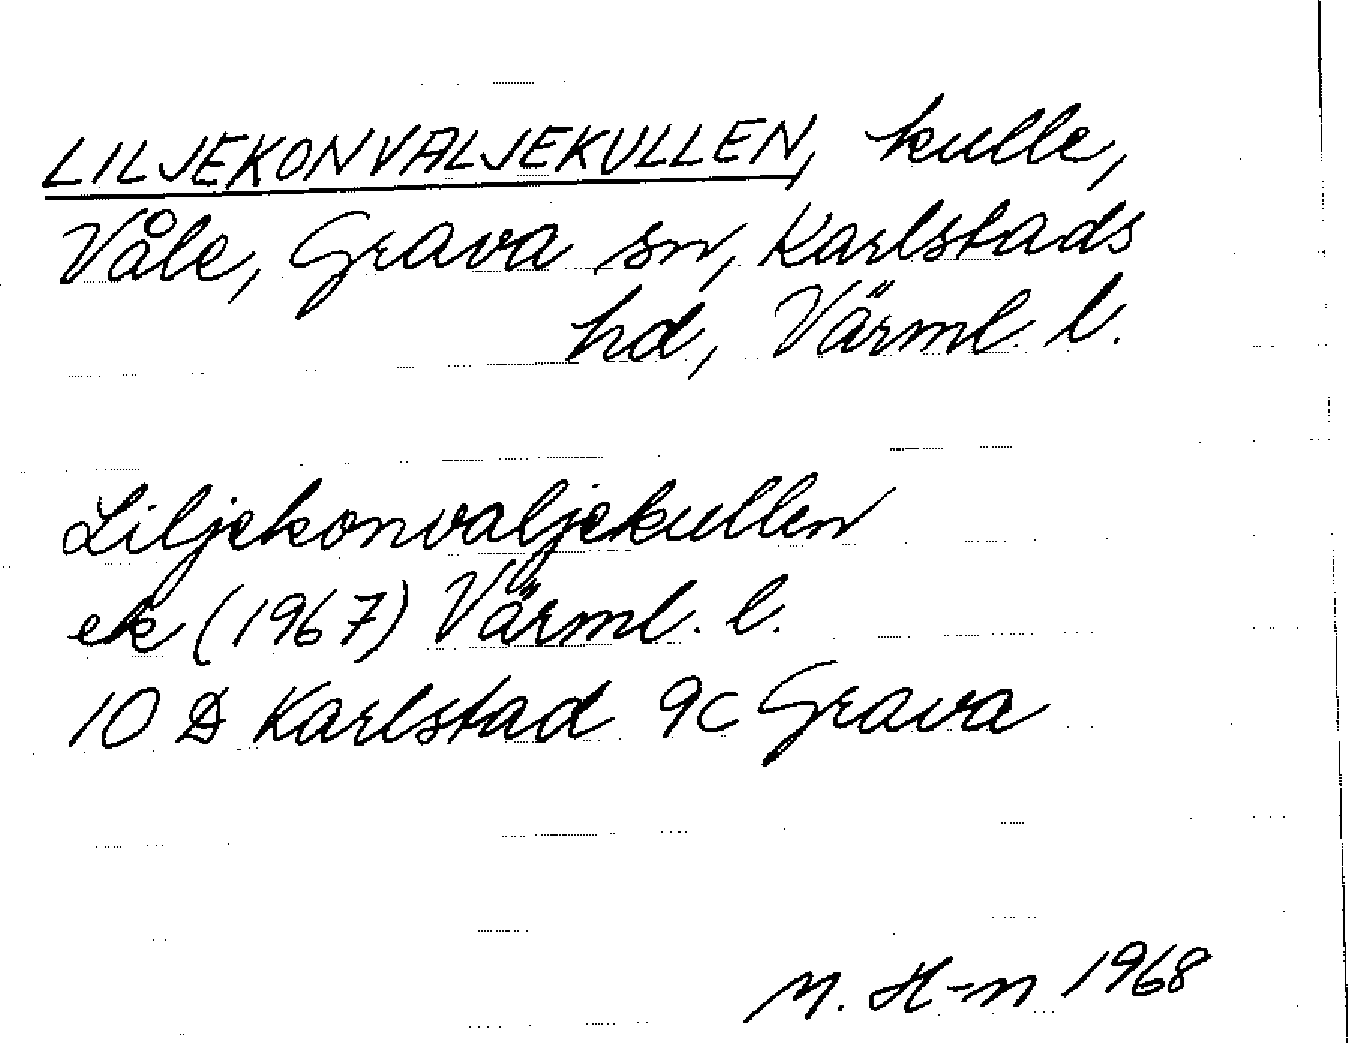 LILJEKONVALJEKULLEN, kulle,
Våle, Grava sn, Karlstads
hd, Värml. l.
Liljekonvaljekullen
ek (1967) Värml. l.
10 D Karlstad 9c Grava
M. H-n 1968